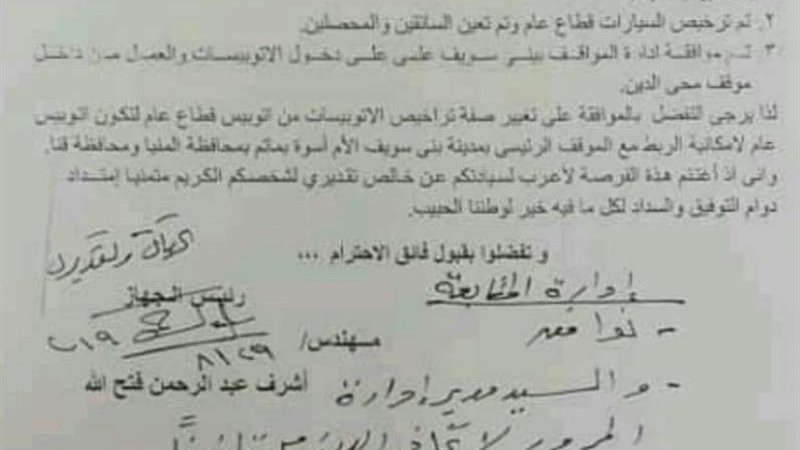 ٢. تم ترخيص السيارات قطاع عام وتم تعين السائقين والمحصلين.
٣. تم موافقة ادارة المواقف ببنى سويف على على دخول الاتوبيسات والعمل من داخل
موقف محى الدين.
لذا يرجى التفضل بالموافقة على تغيير صفة تراخيص الاتوبيسات من اتوبيس قطاع عام لتكون اتوبيس
عام لامكانية الربط مع الموقف الرئيسى بمدينة بنى سويف الأم أسوة بماتم بمحافظة المنيا ومحافظة قنا.
وانى اذ أغتنم هذه الفرصة لأعرب لسيادتكم عن خالص تقديري لشخصكم الكريم متمنيا إمتداد
دوام التوفيق والسداد لكل ما فيه خير لوطننا الحبيب.
و تفضلوا بقبول فائق الاحترام ...
إدارة المتابعة
رئيس الجهاز
مهندس/
٢٠١٩
٨/٢٩
- والسيد مدير إدارة
أشرف عبد الرحمن فتح الله
المرور